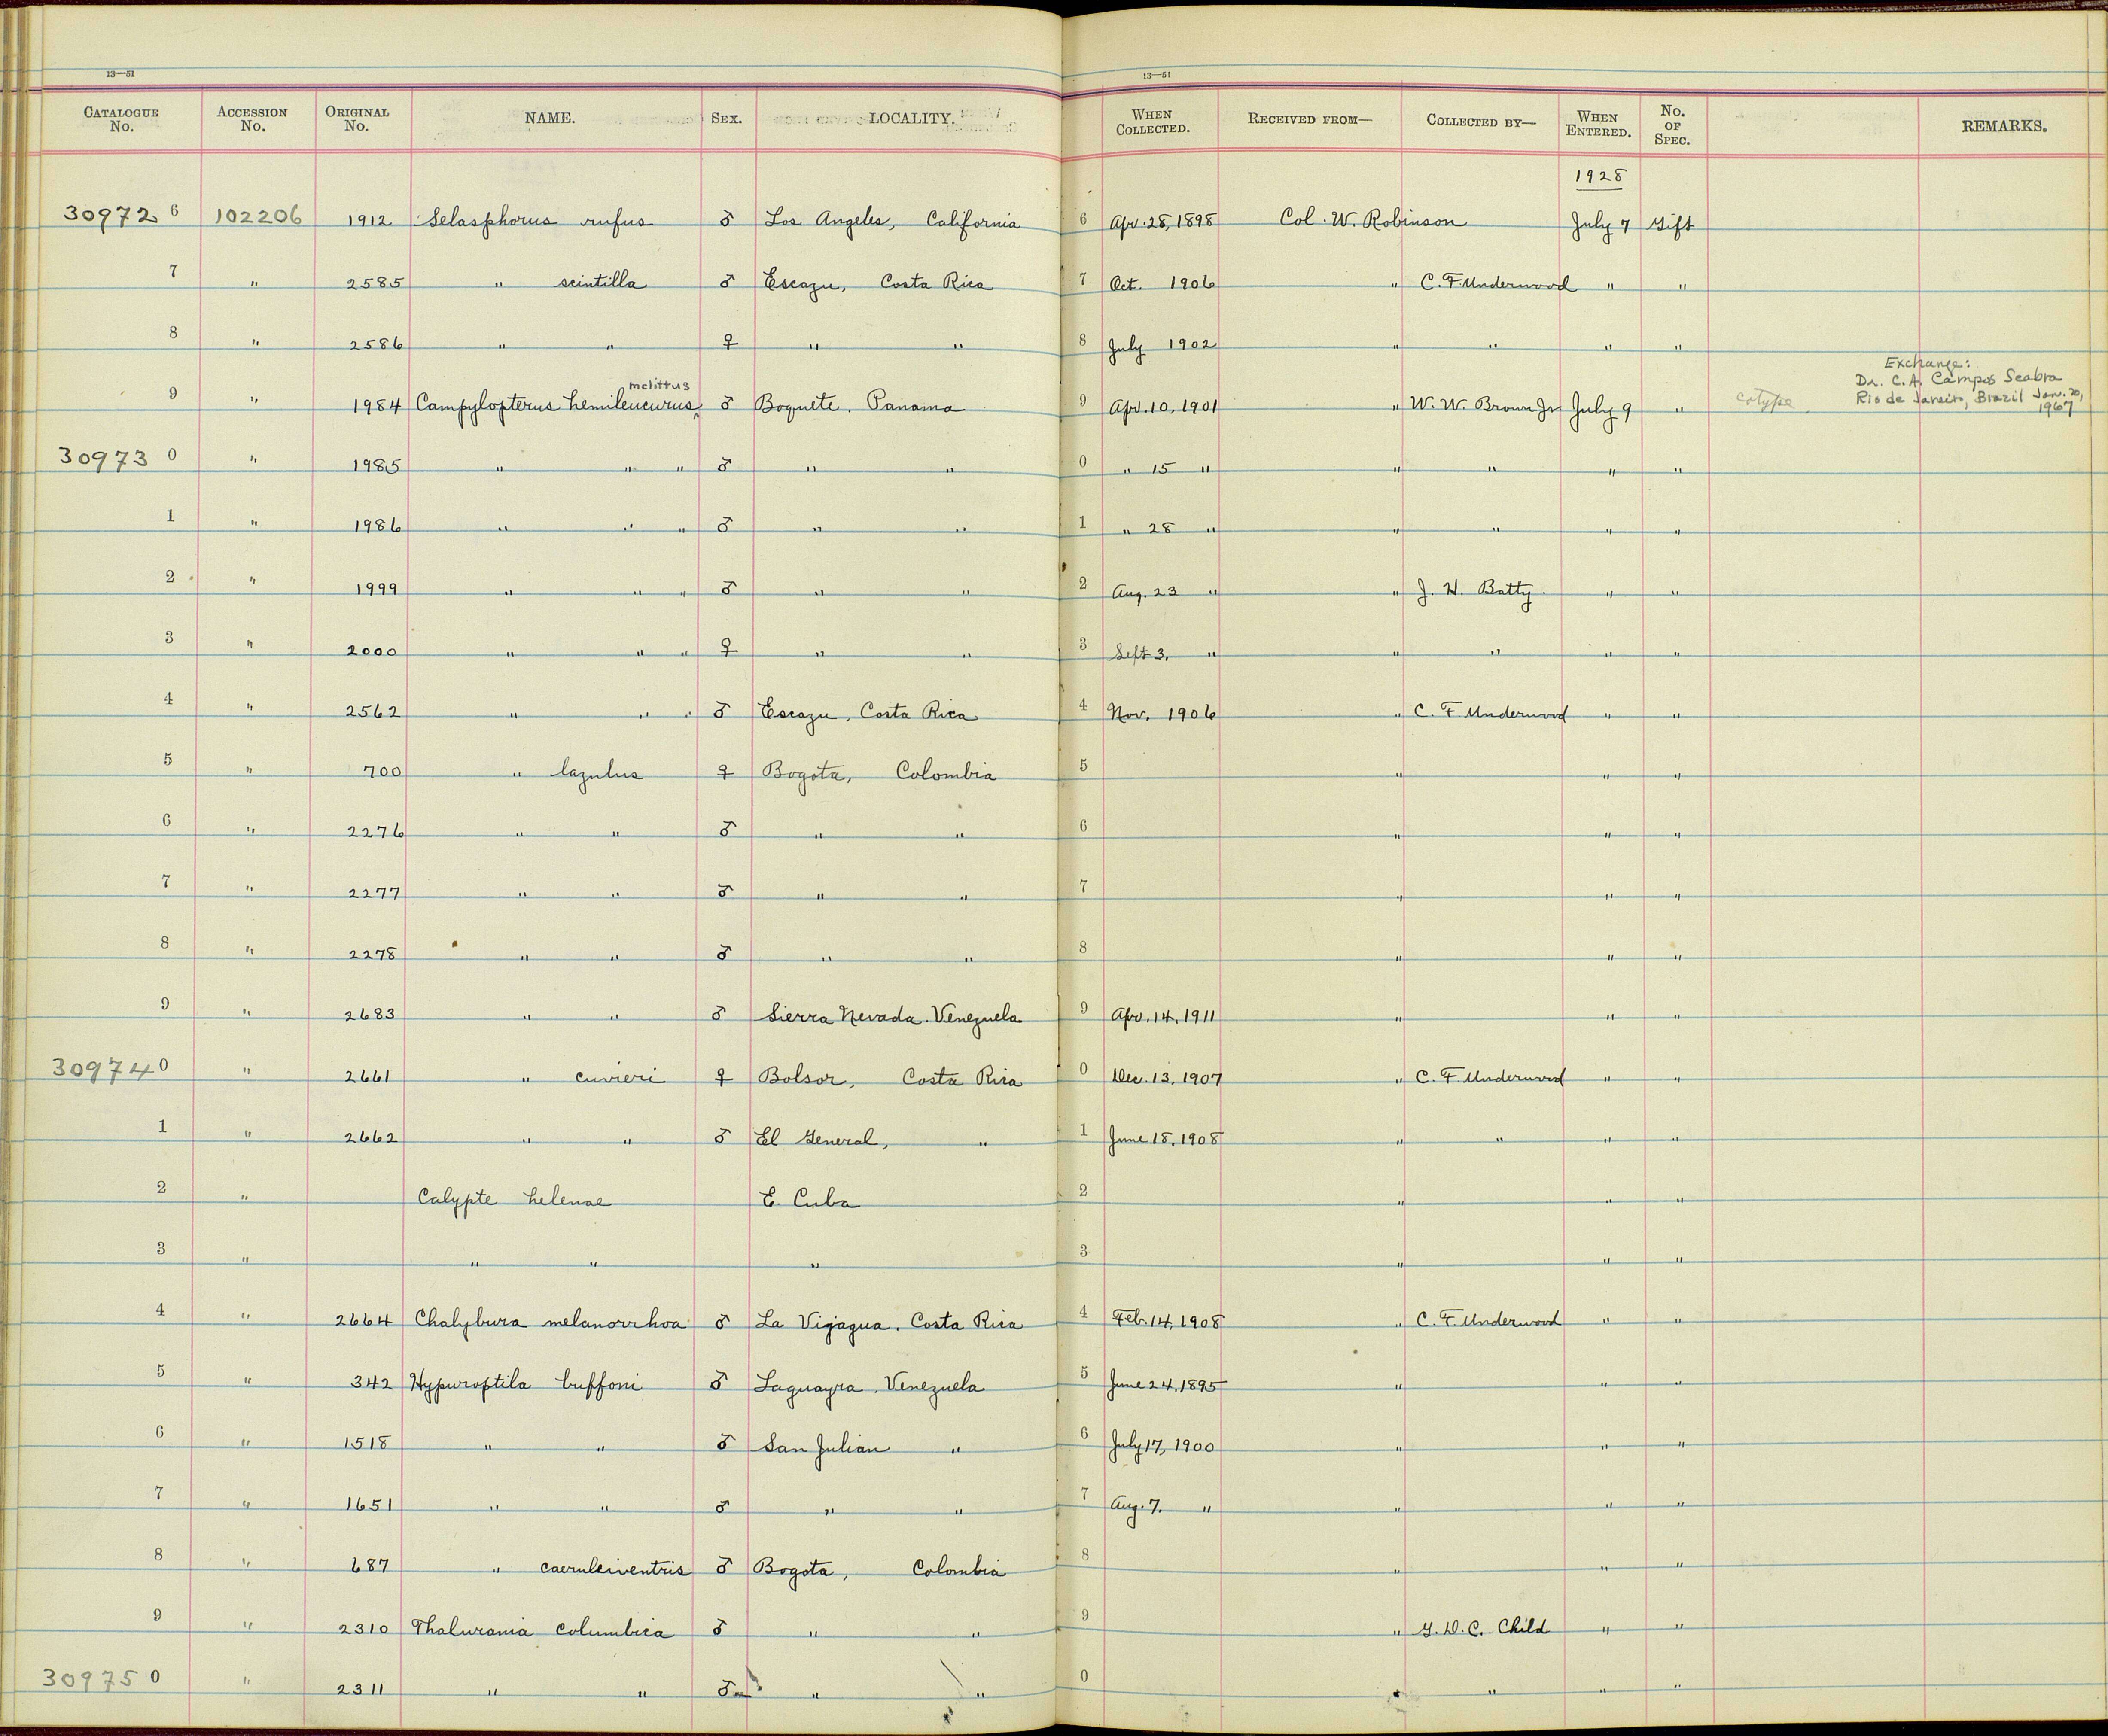 13—51 13—51
CATALOGUE No. ACCESSION No. ORIGINAL No. NAME. SEX. LOCALITY. WHEN COLLECTED. RECEIVED FROM— COLLECTED BY— WHEN ENTERED. No. OF SPEC. REMARKS.
1928
30972 6 102206 1912 Selasphorus rufus ♂ Los Angeles, California 6 Apr. 28, 1898 Col. W. Robinson July 7 Gift
7 " 2585 " scintilla ♂ Escazu, Costa Rica 7 Oct. 1906 " C. F. Underwood " "
8 " 2586 " " ♀ " " 8 July 1902 " " " "
9 " 1984 Campylopterus hemileucurus mellitus ♂ Boquete, Panama 9 Apr. 10, 1901 " W. W. Brown Jr July 9 " cotype Exchange:
Dr. C. A. Campos Seabra
Rio de Janeiro, Brazil Jan. 20,
1967
30973 0 " 1985 " " " ♂ " " 0 " 15 " " " " "
1 " 1986 " " " ♂ " " 1 " 28 " " " " "
2 " 1999 " " " ♂ " " 2 Aug. 23 " " J. H. Batty " "
3 " 2000 " " " ♀ " " 3 Sept 3. " " " " "
4 " 2562 " " " ♂ Escazu, Costa Rica 4 Nov. 1906 " C. F. Underwood " "
5 " 700 " lazulus ♀ Bogota, Colombia 5 " " "
6 " 2276 " " ♂ " " 6 " " "
7 " 2277 " " ♂ " " 7 " " "
8 " 2278 " " ♂ " " 8 " " "
9 " 2683 " " ♂ Sierra Nevada. Venezuela 9 Apr. 14, 1911 " " "
30974 0 " 2661 " cuvieri ♀ Bolson, Costa Rica 0 Dec. 13, 1907 " C. F. Underwood " "
1 " 2662 " " ♂ El General, " 1 June 18, 1908 " " " "
2 " Calypte helenae E. Cuba 2 " " "
3 " " " " 3 " " "
4 " 2664 Chalybura melanorrhoa ♂ La Vijagua. Costa Rica 4 Feb. 14, 1908 " C. F. Underwood " "
5 " 342 Hypuroptila buffoni ♂ Laguayra, Venezuela 5 June 24, 1895 " " "
6 " 1518 " " ♂ San Julian " 6 July 17, 1900 " " "
7 " 1651 " " ♂ " " 7 Aug. 7. " " " "
8 " 687 " caeruleiventris ♂ Bogota, Colombia 8 " " "
9 " 2310 Thalurania columbica ♂ " " 9 " G. D. C. Child " "
30975 0 " 2311 " " ♂ " " 0 " " " "